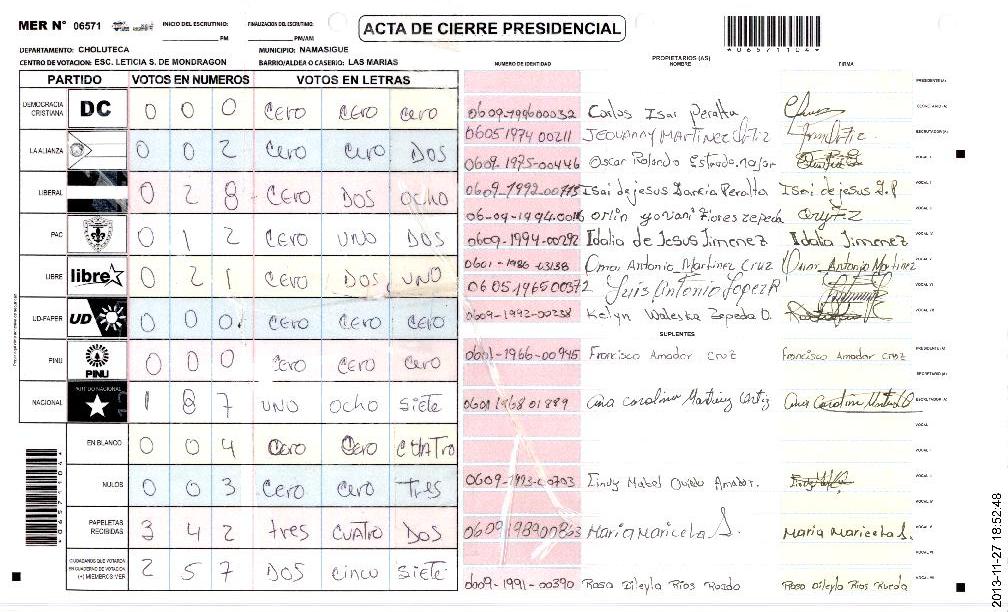 MER N° 06571
INICIO DEL ESCRUTINIO:
PM
FINALIZACION DEL ESCRUTINIO:
PM/AM
ACTA DE CIERRE PRESIDENCIAL
*06571104*
DEPARTAMENTO: CHOLUTECA
MUNICIPIO: NAMASIGUE
CENTRO DE VOTACION: ESC. LETICIA S. DE MONDRAGON
BARRIO/ALDEA O CASERIO: LAS MARIAS
NUMERO DE IDENTIDAD
PROPIETARIOS (AS)
NOMBRE
FIRMA
PARTIDO VOTOS EN NUMEROS VOTOS EN LETRAS
DEMOCRACIA CRISTIANA DC 0 0 0 CERO CERO CERO
LA ALIANZA 0 0 2 CERO CERO DOS
LIBERAL 0 2 8 CERO DOS OCHO
PAC 0 1 2 CERO UNO DOS
LIBRE libre 0 2 1 CERO DOS UNO
UD-FAPER UD 0 0 0 CERO CERO CERO
PINU PINU 0 0 0 CERO CERO CERO
NACIONAL PARTIDO NACIONAL 1 8 7 UNO OCHO SIETE
EN BLANCO 0 0 4 CERO CERO CUATRO
NULOS 0 0 3 CERO CERO TRES
PAPELETAS RECIBIDAS 3 4 2 tres CUATRO DOS
CIUDADANOS QUE VOTARON EN CUADERNO DE VOTACION (+) MIEMBROS MER 2 5 7 DOS cinco SIETE
PRESIDENTE(A)
SECRETARIO (A)
Carlos Isai Peralta
ESCRUTADOR (A)
0605 1974 00211 JEOVANNY MARTINEZ ORTIZ
VOCAL I
0609-1975-00446 Oscar Rolando Estrada
0609-1992-00775 Isai de jesus Garcia Peralta Isai de jesus G.P
06-09-1994-0016 orlin yovani Flores zepeda
0609-1994-00292 Idalia de Jesus Jimenez Idalia Jimenez
0601-1986-03138 Omar Antonio Martinez Cruz Omar Antonio Martinez
0605196500372 Luis Antonio Lopez R
0609-1992-00238 Kelyn Waleska Zepeda O.
SUPLENTES
0601-1966-00945 Francisco Amador cruz Francisco Amador cruz
PRESIDENTE (A)
SECRETARIO (A)
0601 1968 01889 Ana Carolina Martinez Ortiz
ESCRUTADOR (A)
VOCAL
Lindy Mabel Oviedo Amador.
0609 1989 00863 Maria Maricela S. Maria Maricela S.
0609-1991-00390 Rosa Dileyla Rios Rueda Rosa Dileyla Rios Rueda
*06571104*
2013-11-27 18:52:48